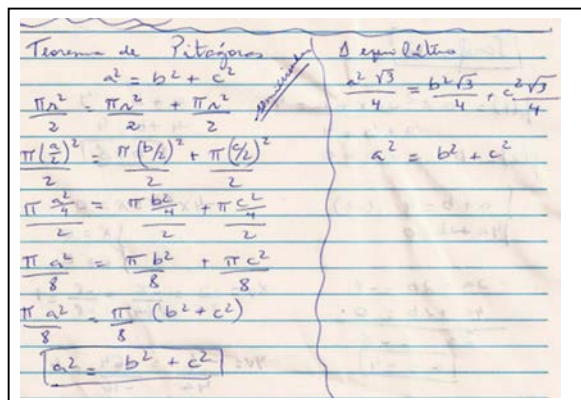 Teorema de Pitágoras
a² = b² + c²
πr²/2 = πr²/2 + πr²/2
semicírculo
π(a/2)²/2 = π(b/2)²/2 + π(c/2)²/2
π a²/4/2 = π b²/4/2 + π c²/4/2
π a²/8 = π b²/8 + π c²/8
π a²/8 = π/8 (b² + c²)
a² = b² + c²
Δ equilátero
a²√3/4 = b²√3/4 + c²√3/4
a² = b² + c²